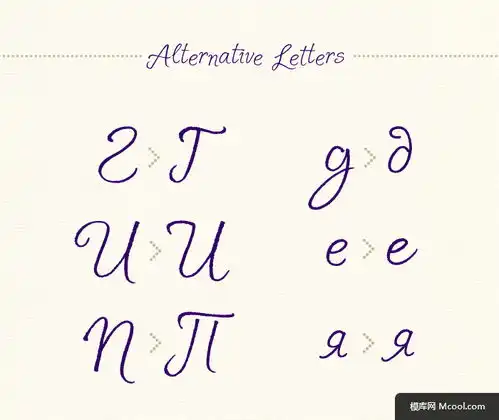 Alternative Letters
г > Г д > д
И > И е > е
П > П я > я
模库网 Mcool.com